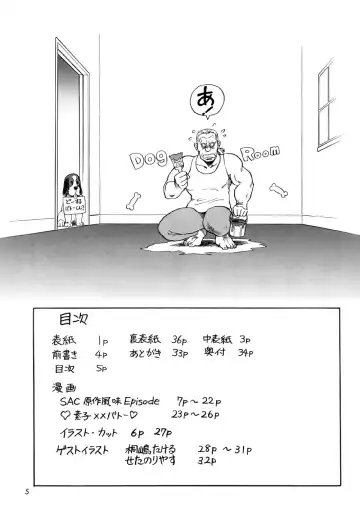 あ!
Dog Room
どーする
バトーくん!
目次
表紙 1p 裏表紙 36p 中表紙 3p
前書き 4p あとがき 33p 奥付 34p
目次 5p
漫画
SAC 原作風味 Episode 7p〜22p
♡ 素子××バトー♡ 23p〜26p
イラスト・カット 6p 27p
ゲストイラスト 桐嶋たける 28p〜31p
せたのりやす 32p
5